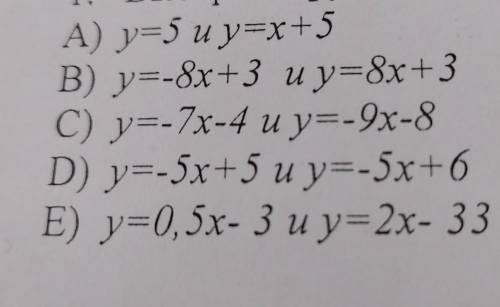 A) y=5 и y=x+5
B) y=-8x+3 и y=8x+3
C) y=-7x-4 и y=-9x-8
D) y=-5x+5 и y=-5x+6
E) y=0,5x- 3 и y=2x- 33